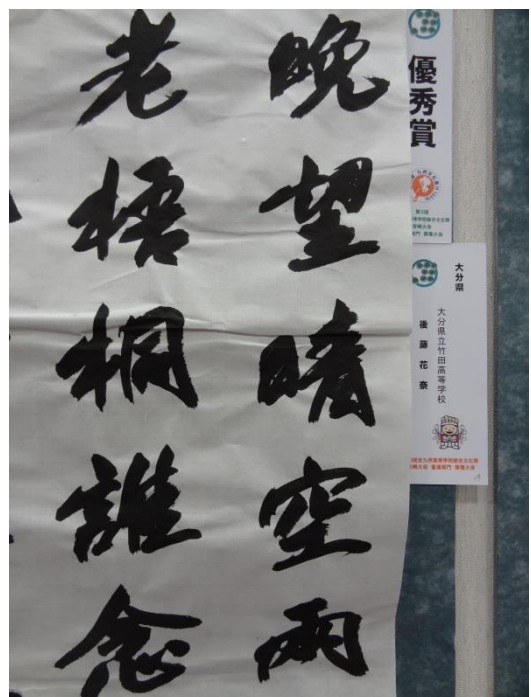 晩望晴空雨
老梧桐誰念
優秀賞
第3回
大分県
大分県立竹田高等学校
後藤花奈